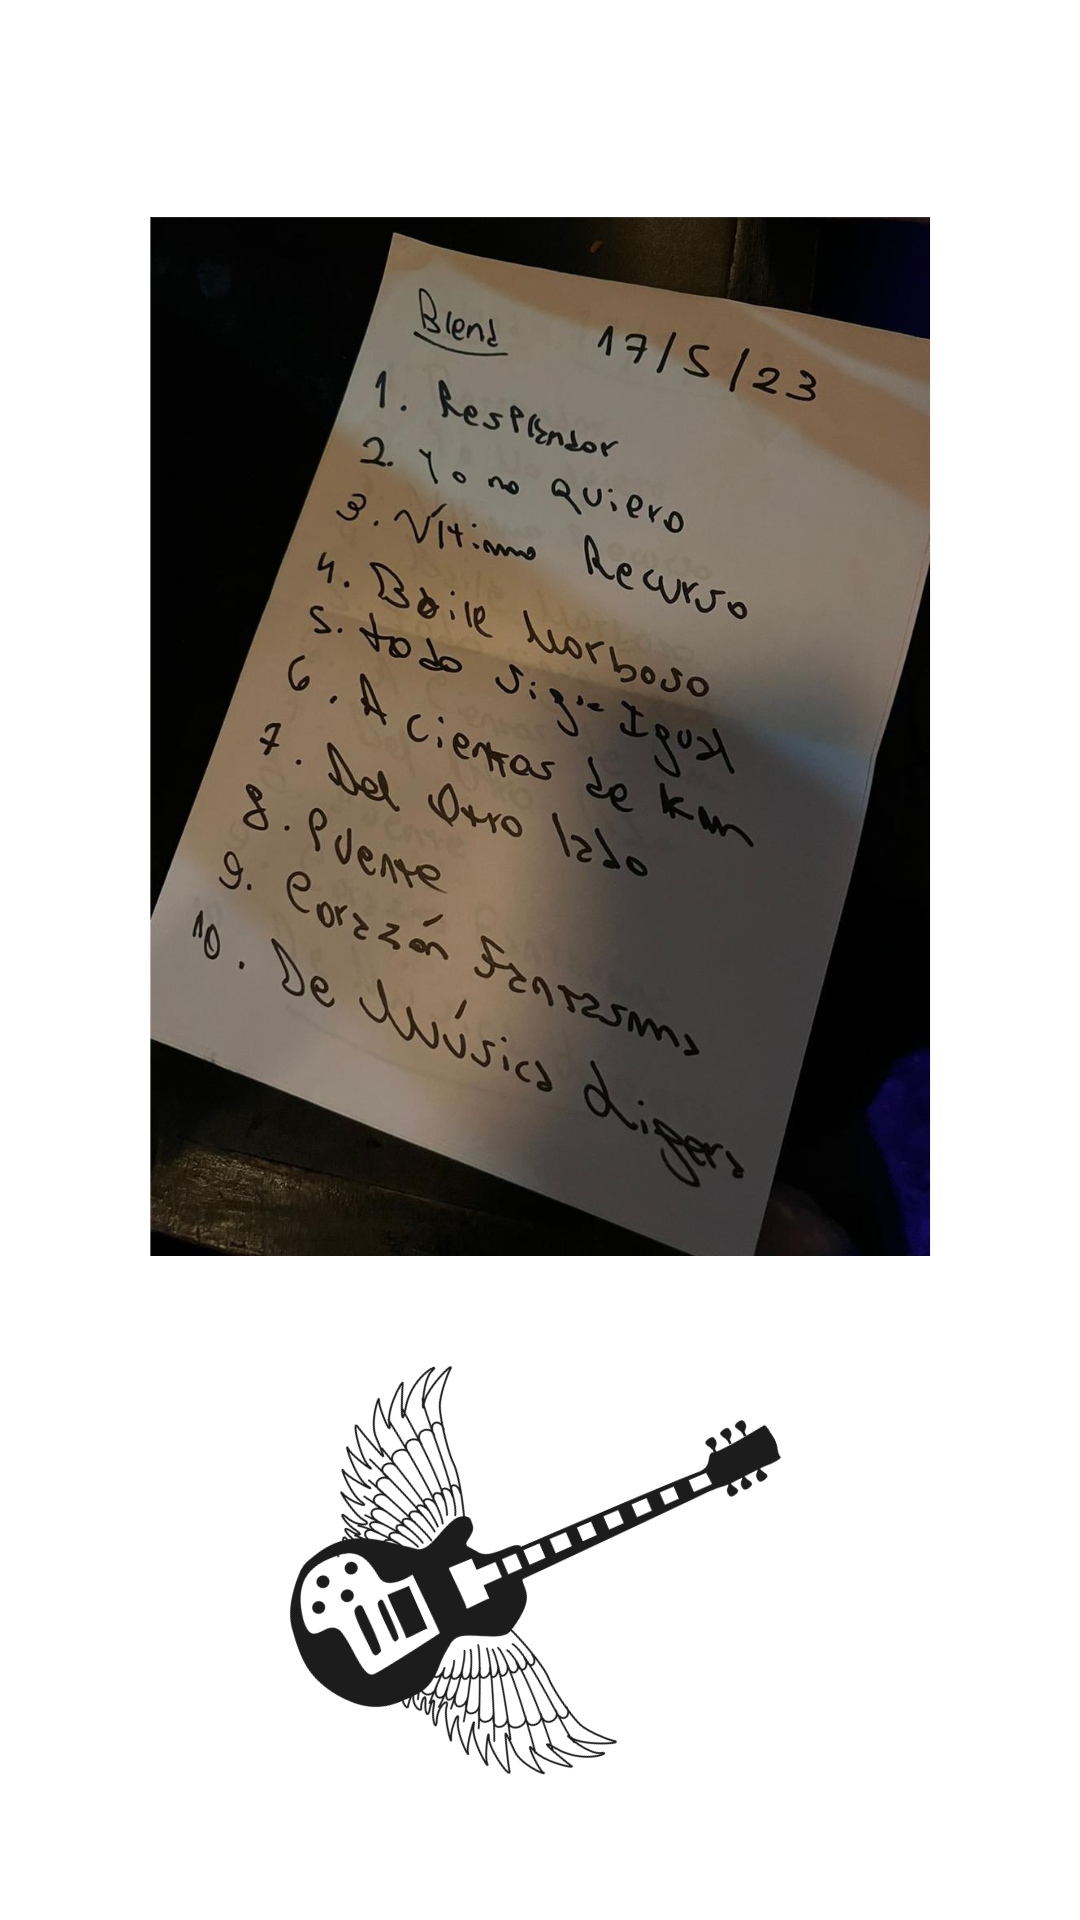 Blend 17/5/23
1. Resplendor
2. Yo no quiero
3. Último Recurso
4. Baile Morboso
5. todo sigue Igual
6. A cientos de km
7. Del Otro lado
8. Puente
9. Corazón Fantasma
10. De Música Ligera